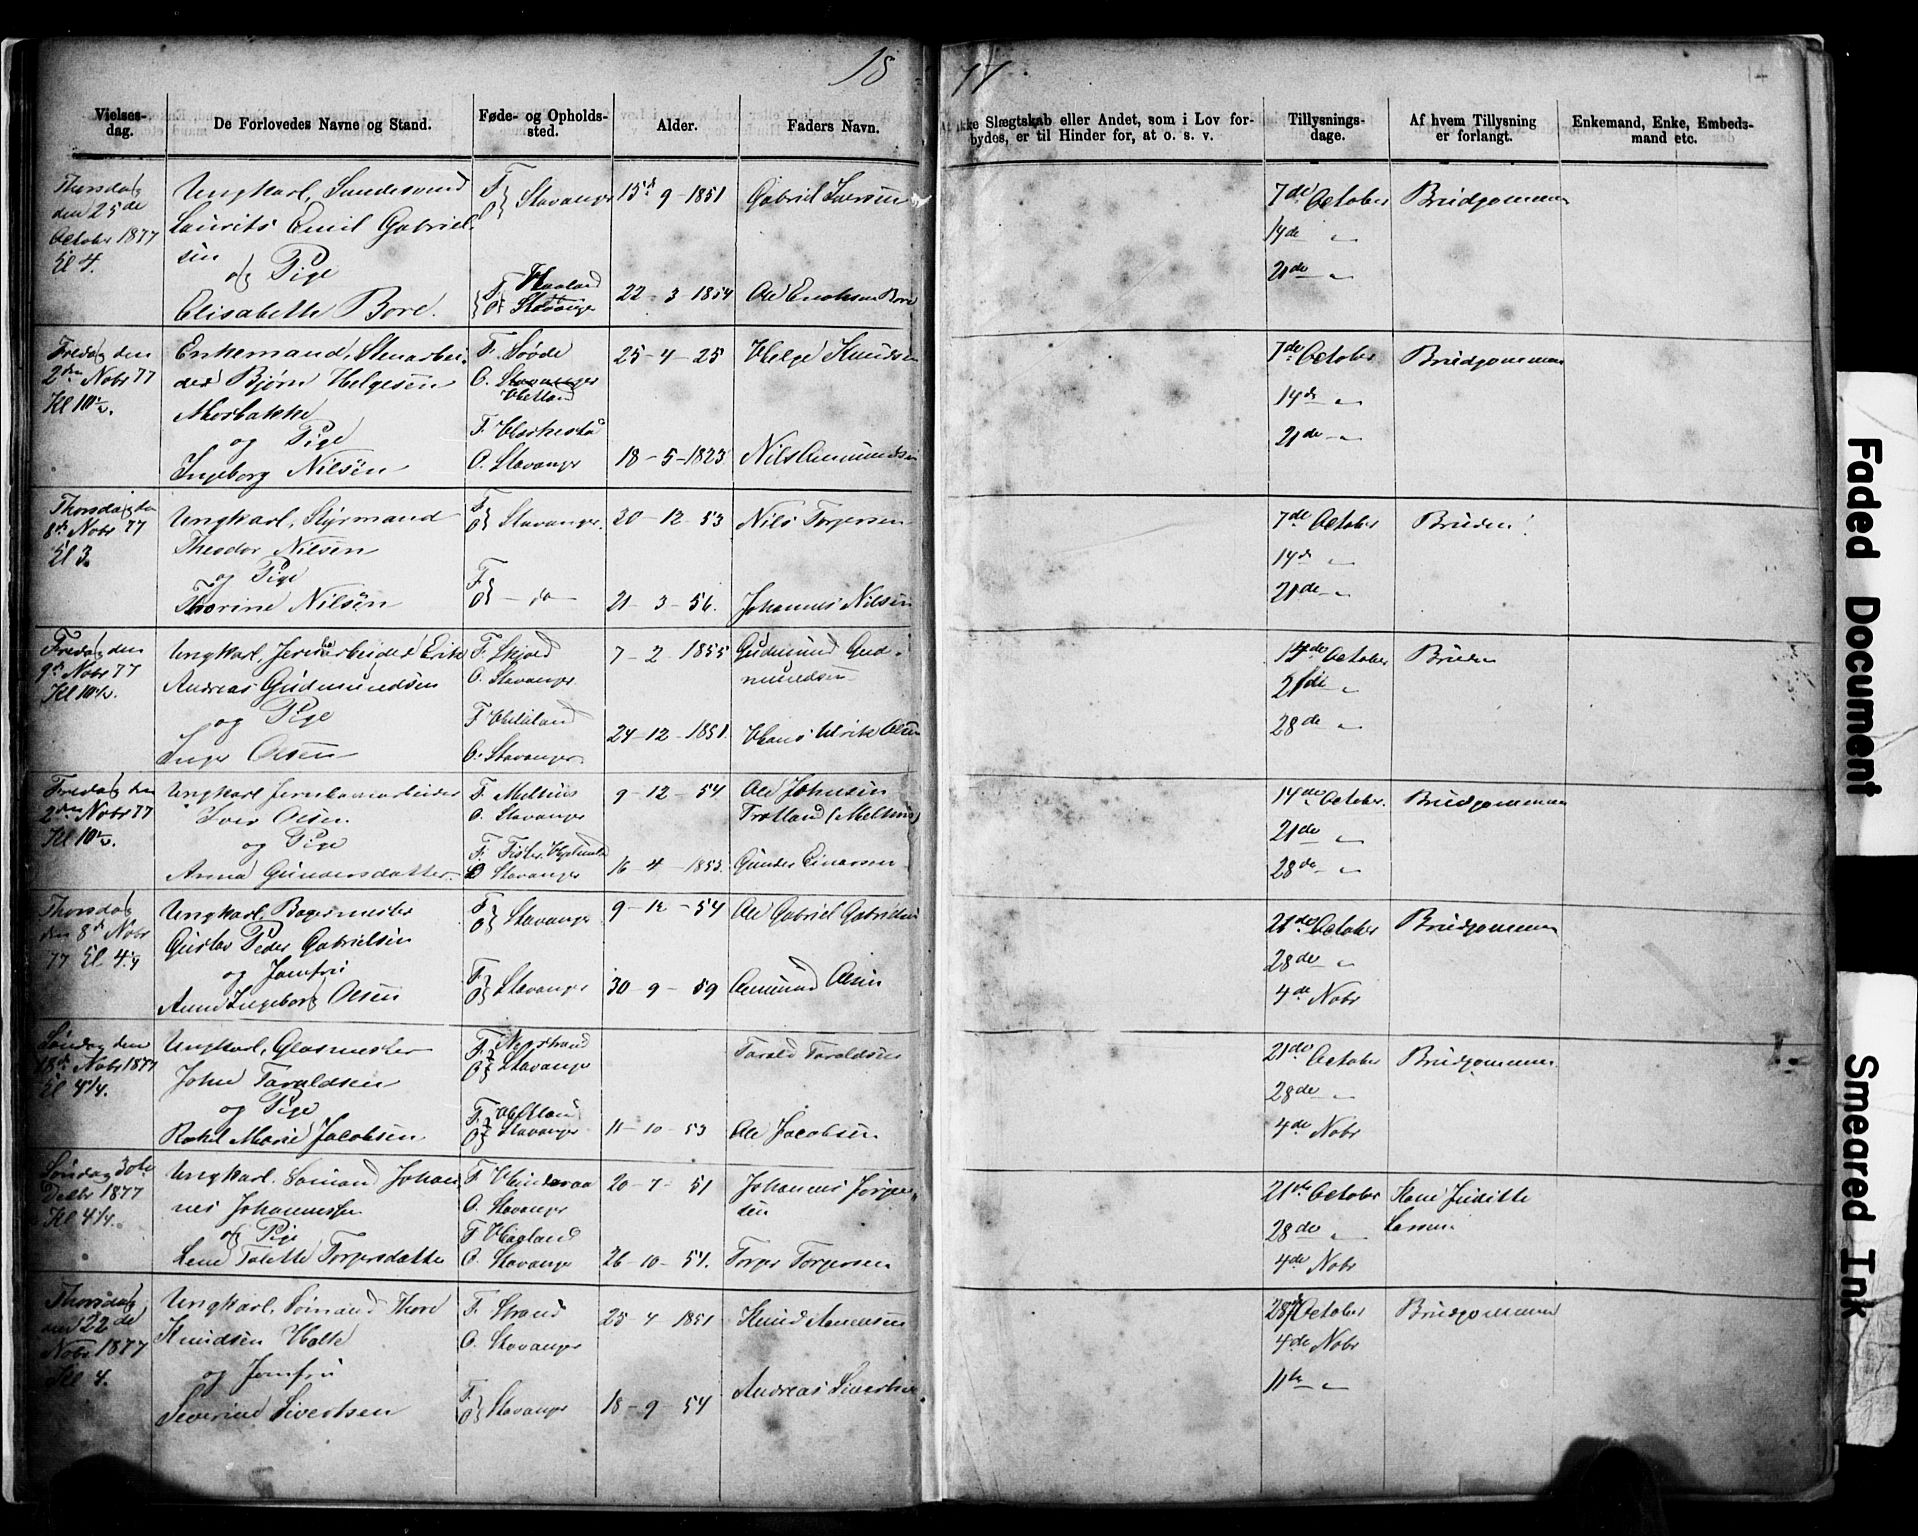 18
77
Vielses-
dag.
De Forlovedes Navne og Stand.
Føde- og Opholds-
sted.
Alder.
Faders Navn.
ikke Slægtskab eller Andet, som i Lov for-
bydes, er til Hinder for, at o. s. v.
Tillysnings-
dage.
Af hvem Tillysning
er forlangt.
Enkemand, Enke, Embeds-
mand etc.
Thorsdag
den 25de
October 1877
Kl 4.
Ungkarl,
Laurits Emil Gabriel-
sen
og Pige
Elisabeth Bore.
F
O Stavanger
F Haaland
O Stavanger
15de 9 - 1851
22 - 3 - 1854
Gabriel Iversen
Ole Bore
7de October
14de "
21de "
Brudgommen
Fredag den
2den Nobr 77
Kl 10½.
Enkemand, Stenarbei-
der Bjørn Helgesen
og Pige
Ingeborg Nilsen
F.
O. Stavanger
Hetland
F.
O. Stavanger
25 - 4 - 25
18 - 5 - 1823
Helge Knudsen
Nils Amundsen
7de October
14de "
21de "
Brudgommen
Thorsdag den
8de Nobr 77
Kl 3.
Ungkarl, Styrmand
Theodor Nilsen
og Pige
Thorine Nilsen
F
O Stavanger
F
O — do —
30 - 12 - 53
21 - 3 - 56.
Nils Torgersen
Johannes Nilsen
7de October
14de "
21de "
Bruden
Fredag den
9de Nobr 77
Kl 10½.
Ungkarl, Erik
Andreas Gudmundsen
og Pige
Inger Olsen
F. Skjold
O. Stavanger
F Hetland
O. Stavanger
7 - 2 - 1855
24 - 12 - 1851.
Gudmund Gud-
mundsen
Hans Ulrik Olsen
14de October
21de "
28de "
Bruden
Fredag den
2den Nobr 77
Kl 10½.
Ungkarl
Iver Olsen
og Pige
Anna Gundersdatter
F. Melhus
O. Stavanger
F. Fister, Hjelmeland
O Stavanger
9 - 12 - 54
16 - 4 - 1853.
Ole Johnsen
Trotland (Melhus)
Gunder Einarsen
14de October.
21de "
28de "
Brudgommen
Thorsdag
den 8de Nobr
77 Kl. 4¼
Ungkarl, Bagermester
Gustav Peder Gabrielsen
og Jomfru
Anne Ingeborg Olsen
F.
O Stavanger
F
O Stavanger
9 - 12 - 54
30 - 9 - 59
Ole Gabriel Gabrielsen
Amund Olsen
21de October
28de "
4de Nobr
Brudgommen
Søndag den
18de Nobr 1877
Kl 4¼.
Ungkarl, Glasmester
John Taraldsen
og Pige
Rakel Marie Jacobsen
F. Nerstrand
O Stavanger
F. Hetland
O Stavanger
11 - 10 - 53
Tarald Taraldsen
Ole Jacobsen
21de October
28de "
4de Nobr
Brudgommen
Søndag 30te
Decbr 1877
Kl 4¼.
Ungkarl. Sømand Johan-
nes Johannessen
og Pige
Lene Talette Torgersdatter
F
O. Stavanger
F Haaland
O. Stavanger
20 - 7 - 51
26 - 10 - 54.
Johannes Jørgen-
sen
Torger Torgersen
21de October
28de "
4de Nobr
Juditte
Thorsdag
den 22de
Nobr 1877
Kl 4.
Ungkarl, Sømand Thore
Knudsen Holte
og Jomfru
Severine Sivertsen
F. Strand
O. Stavanger
F
O Stavanger
25 - 4 - 1851
18 - 9 - 54
Knud Aanensen
Andreas Sivertsen
28de October
4de Nobr
11te "
Brudgommen
Faded Document
Smeared Ink